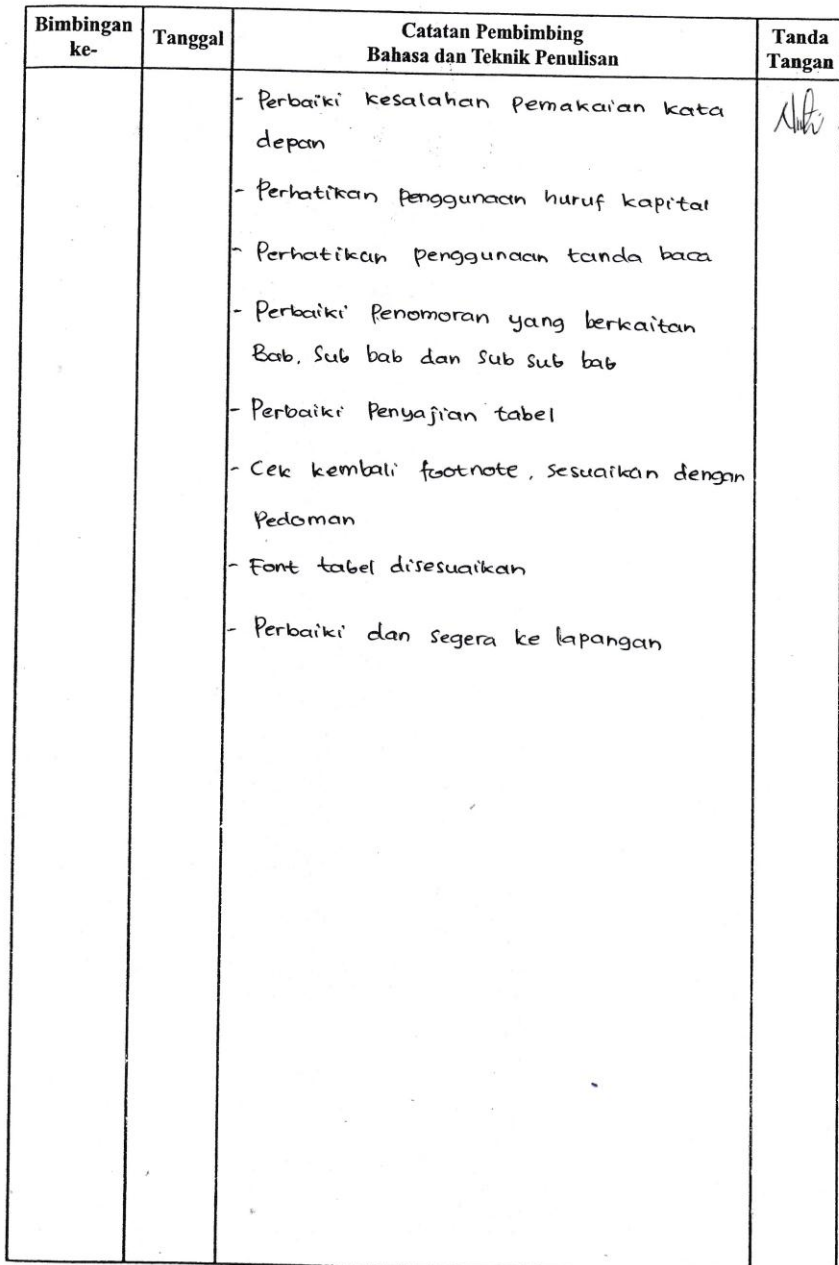 Bimbingan ke-
Tanggal
Catatan Pembimbing
Bahasa dan Teknik Penulisan
Tanda Tangan
- Perbaiki kesalahan pemakaian kata
depan
- Perhatikan penggunaan huruf kapital
- Perhatikan penggunaan tanda baca
- Perbaiki Penomoran yang berkaitan
Bab, Sub bab dan Sub sub bab
- Perbaiki Penyajian tabel
- Cek kembali footnote, sesuaikan dengan
Pedoman
- Font tabel disesuaikan
- Perbaiki dan segera ke lapangan